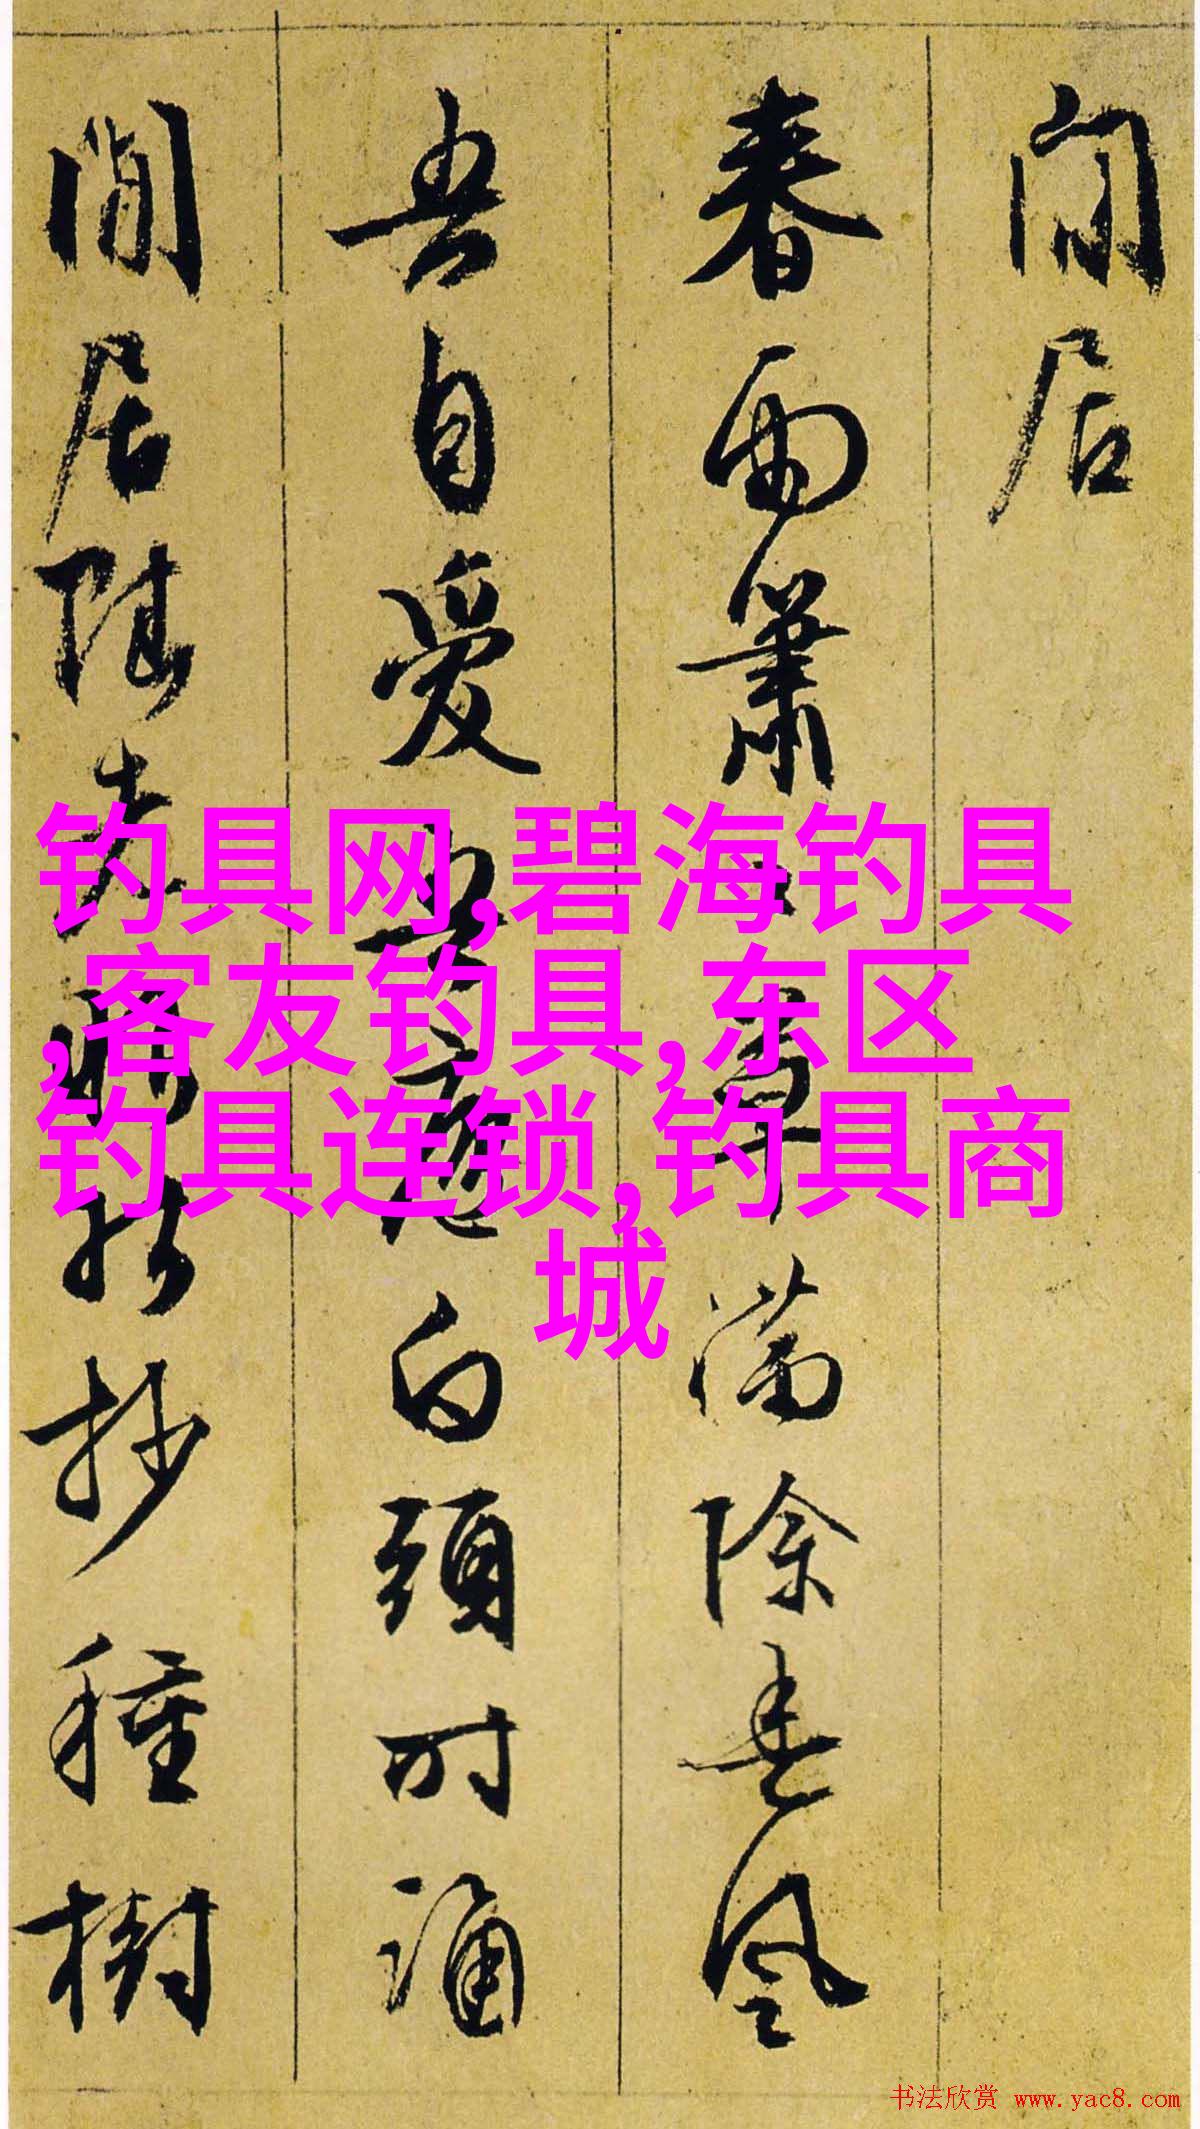 閒居
春雨蕭
草滿除春風
吾自愛吾
白頭時誦
閒居賦
抄種樹
钓具网,碧海钓具
,客友钓具,东区
钓具连锁,钓具商
城
书法欣赏 www.yac8.com